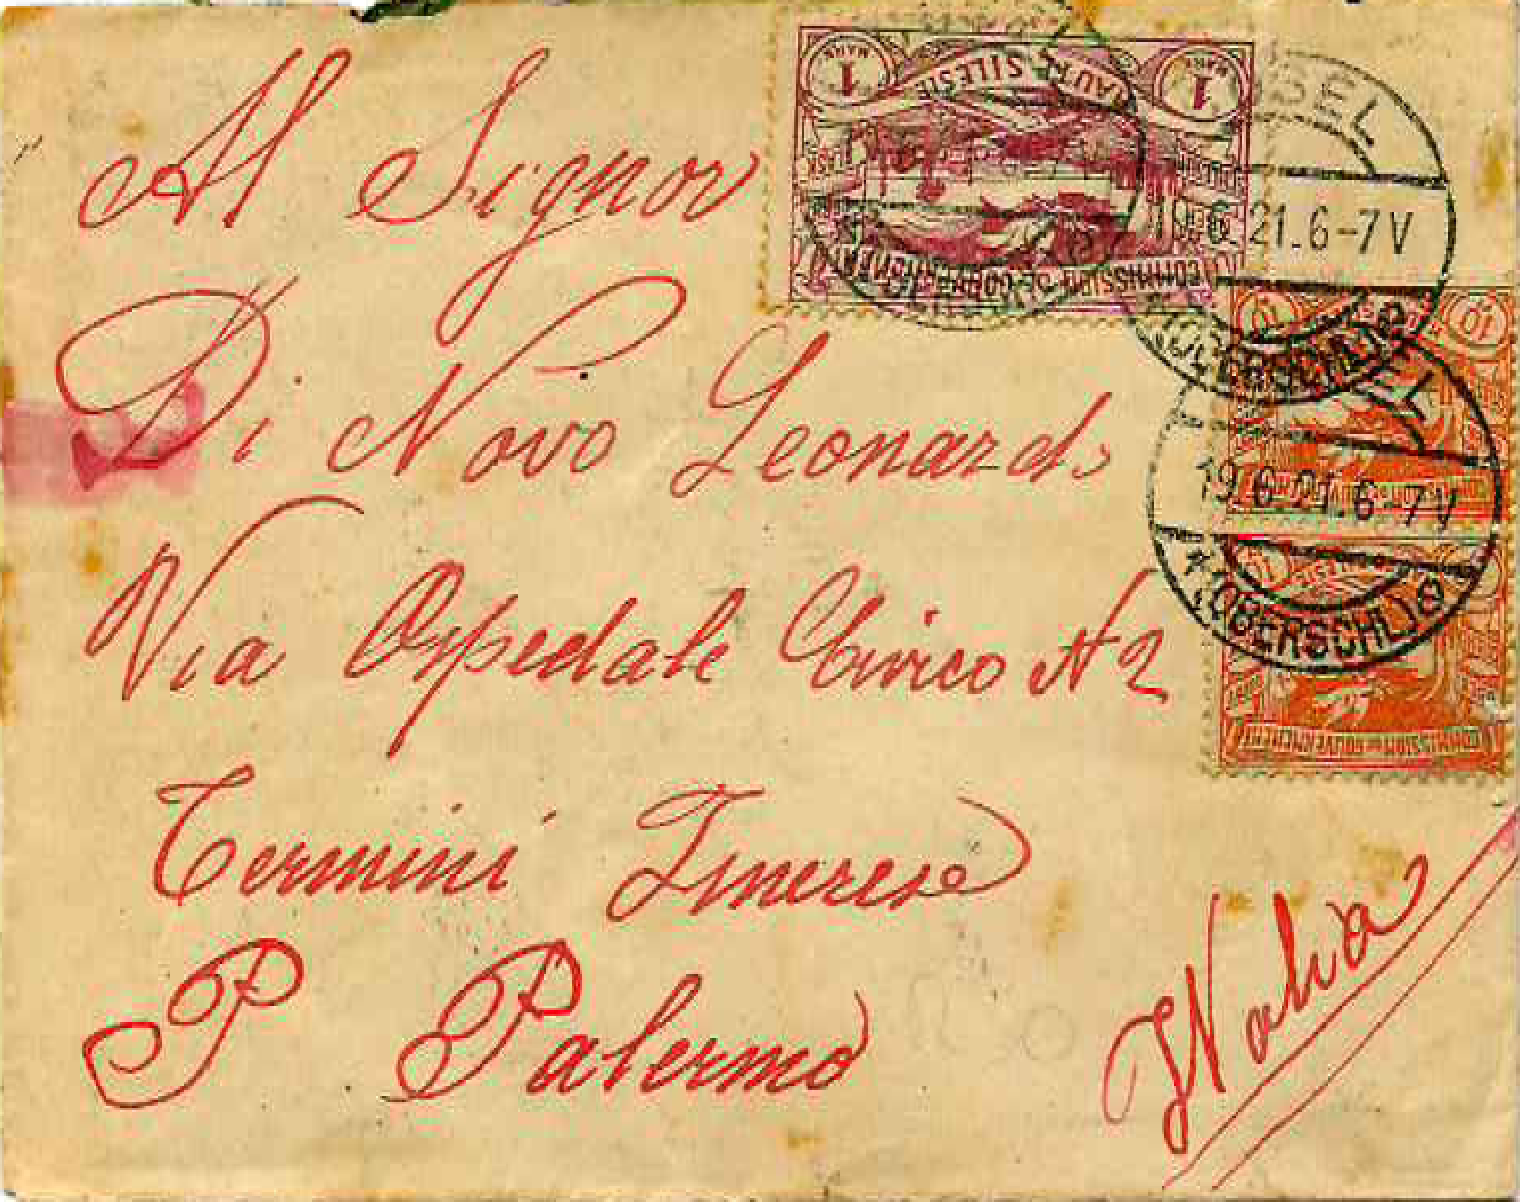 Al Signor
Di Novo Leonardo
Via Ospedale Civico N 2
Termini Imerese
P Palermo
Italia
1 MARK
1 MARK
HAUTE SILESIE
COMMISSION DE GOUVERNEMENT
SEL
19.6.21.6-7V
(OBERSCHL)
10
10
19.6.21.6-7V
* (OBERSCHL)
COMMISSION DE GOUVERNEMENT